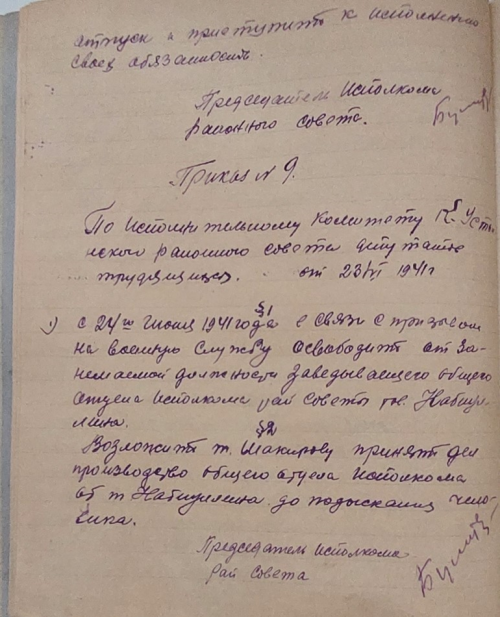 отпуск и приступить к исполнению
своей обязанности.
Председатель Исполкома
районного совета.
Приказ № 9.
По Исполнительному Комитету К. Усть-
инского районного совета депутатов
трудящихся. от 23/VI 1941 г
§1
1) с 24го Июня 1941 года в связи с призывом
на военную службу освободить от за-
немаемой должности Заведывающего общего
отдела Исполкома рай совета тов Набиул-
лина.
§2
Возложить т. Шакирову принять дела
производство общего отдела Исполкома
от т Набиуллина до подыскания чело-
века.
Председатель Исполкома
рай совета